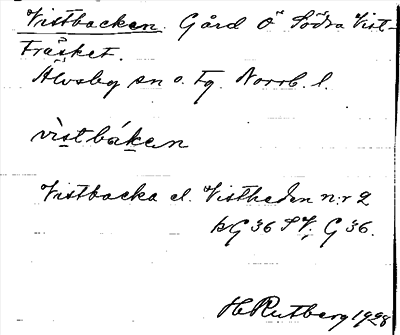 Vistbacken. Gård Ö Södra Vist-
träsket.
Älvsby sn o. Fg. Norrb. l.
vistbáken
Vistbacka el. Vistheden n:r 2
G 36 G 36.
H Rutberg 1928